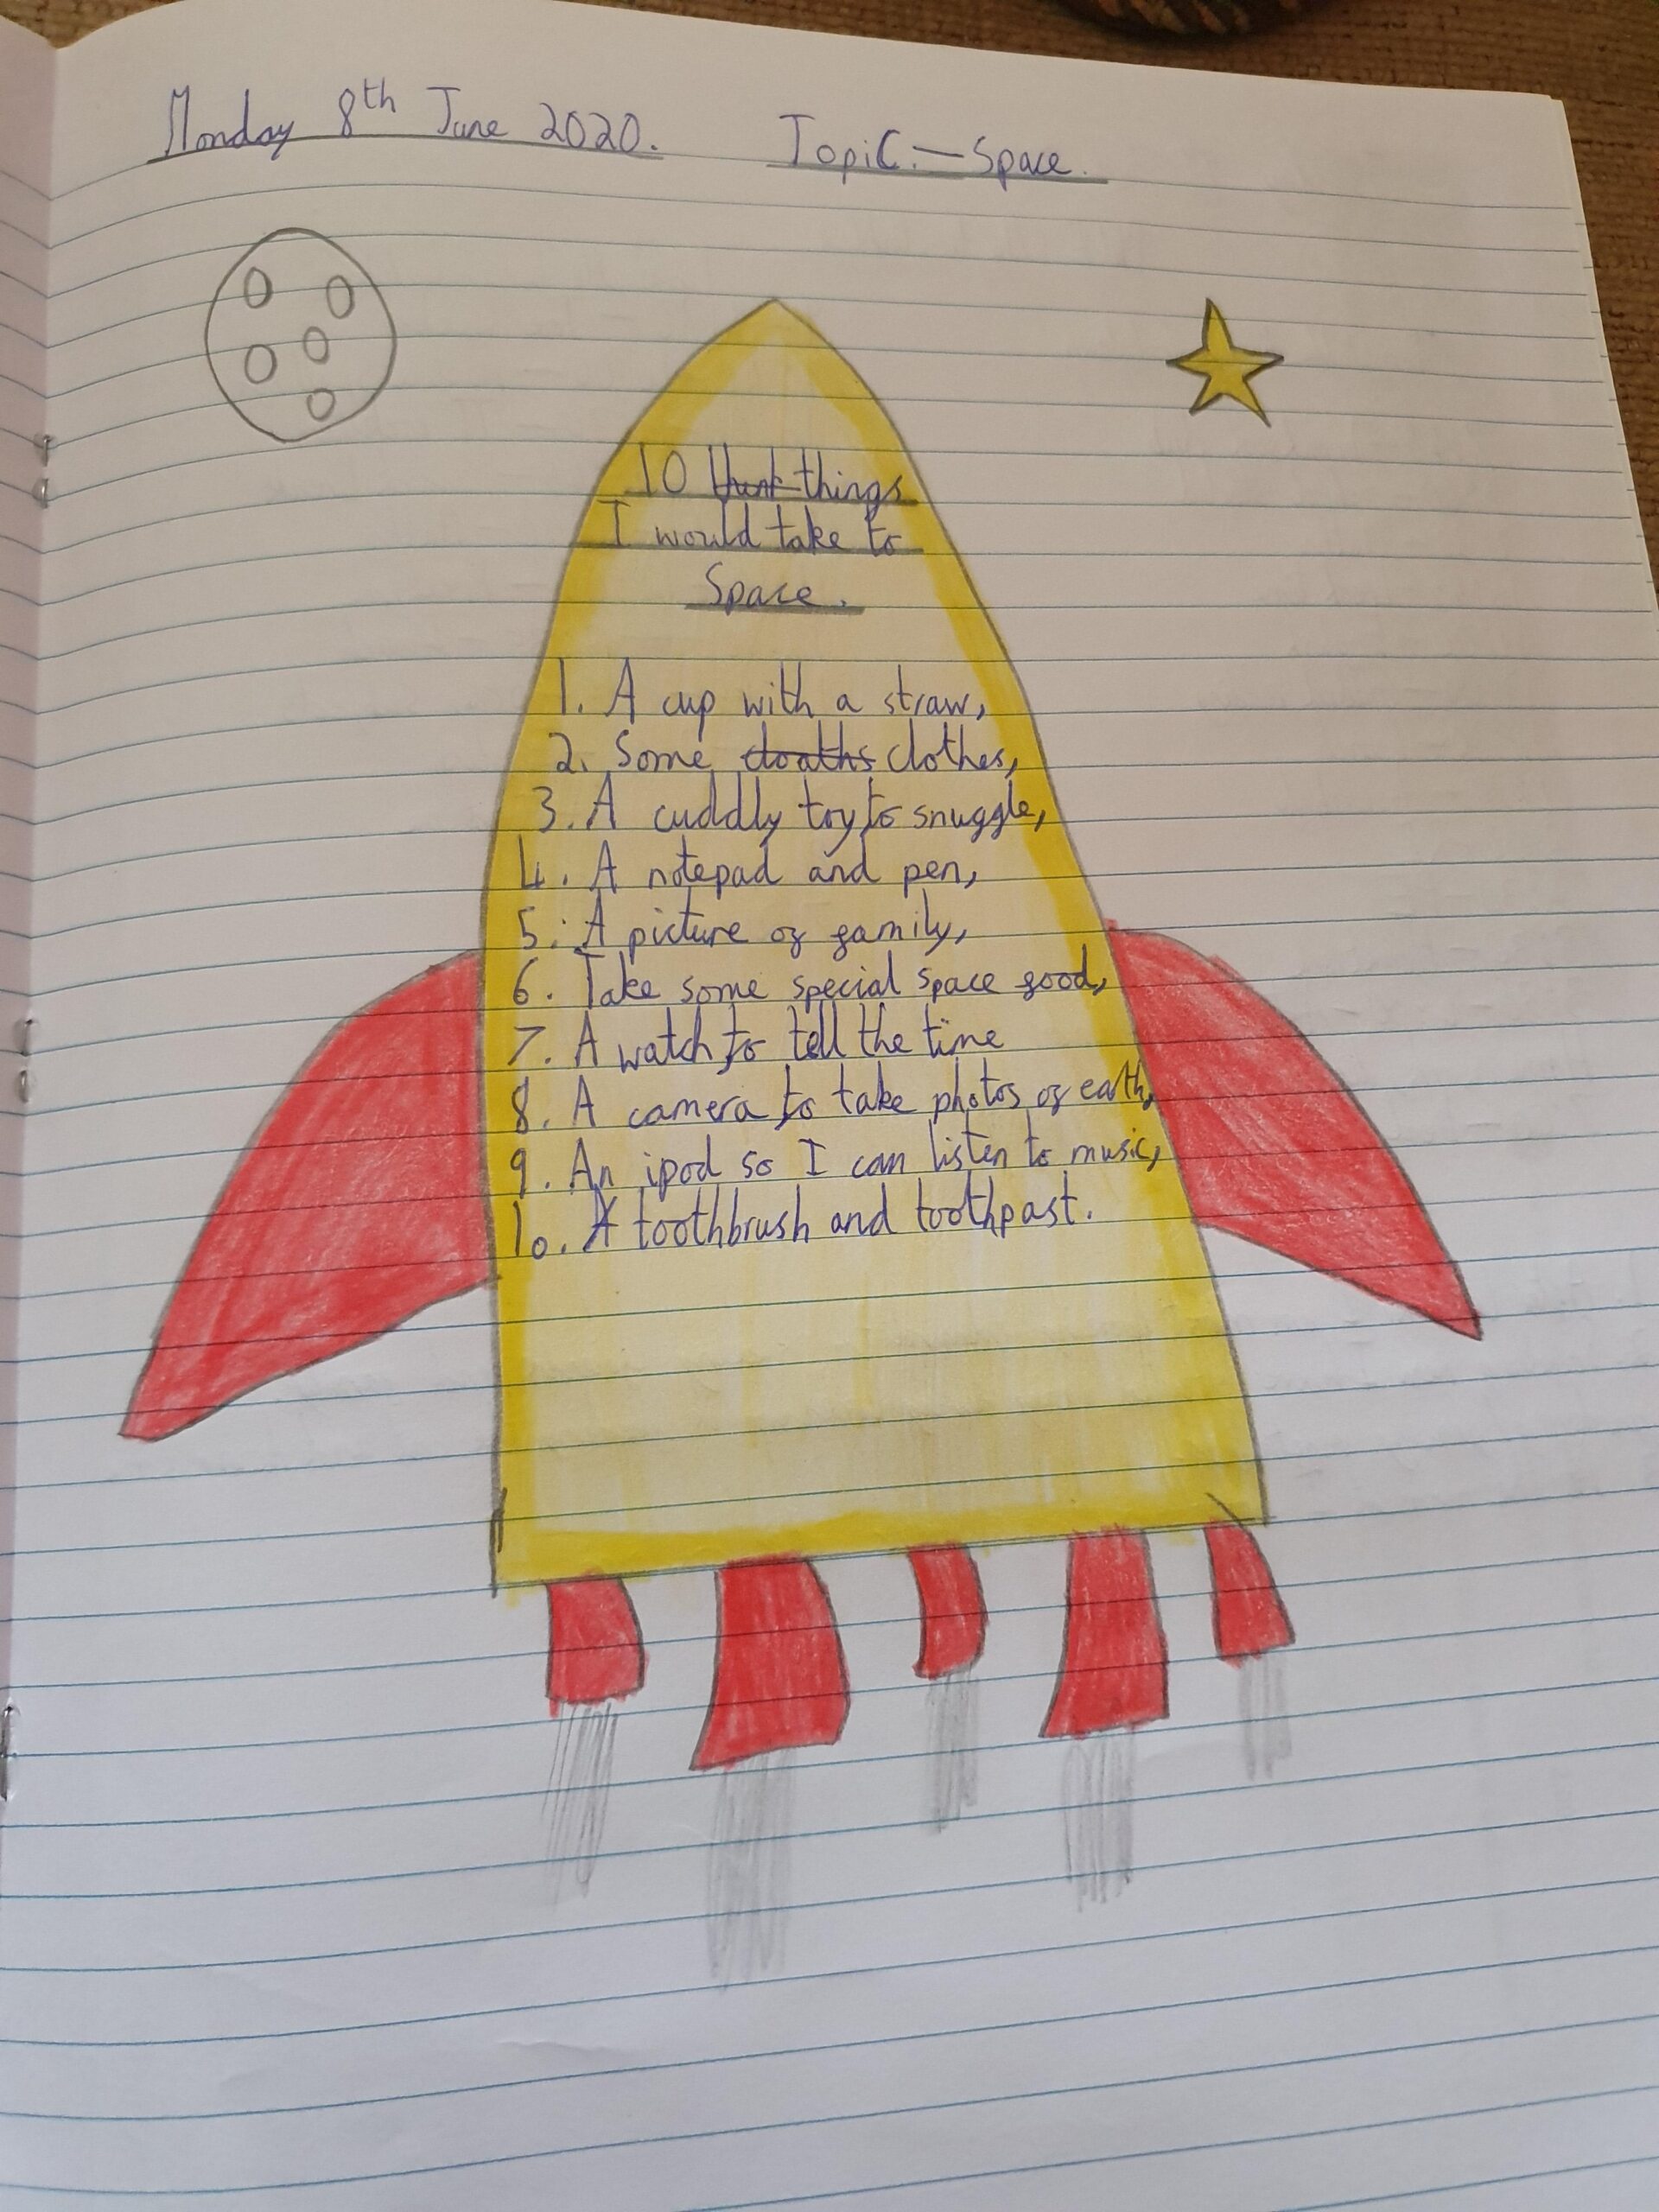 Monday 8th June 2020. Topic:- Space.
10 things
I would take to
Space.
1. A cup with a straw,
2. Some cloaths clothes,
3. A cuddly toy to snuggle,
4. A notepad and pen,
5. A picture of family,
6. Take some special space food,
7. A watch to tell the time
8. A camera to take photos of earth,
9. An ipod so I can listen to music,
10. A toothbrush and toothpast.